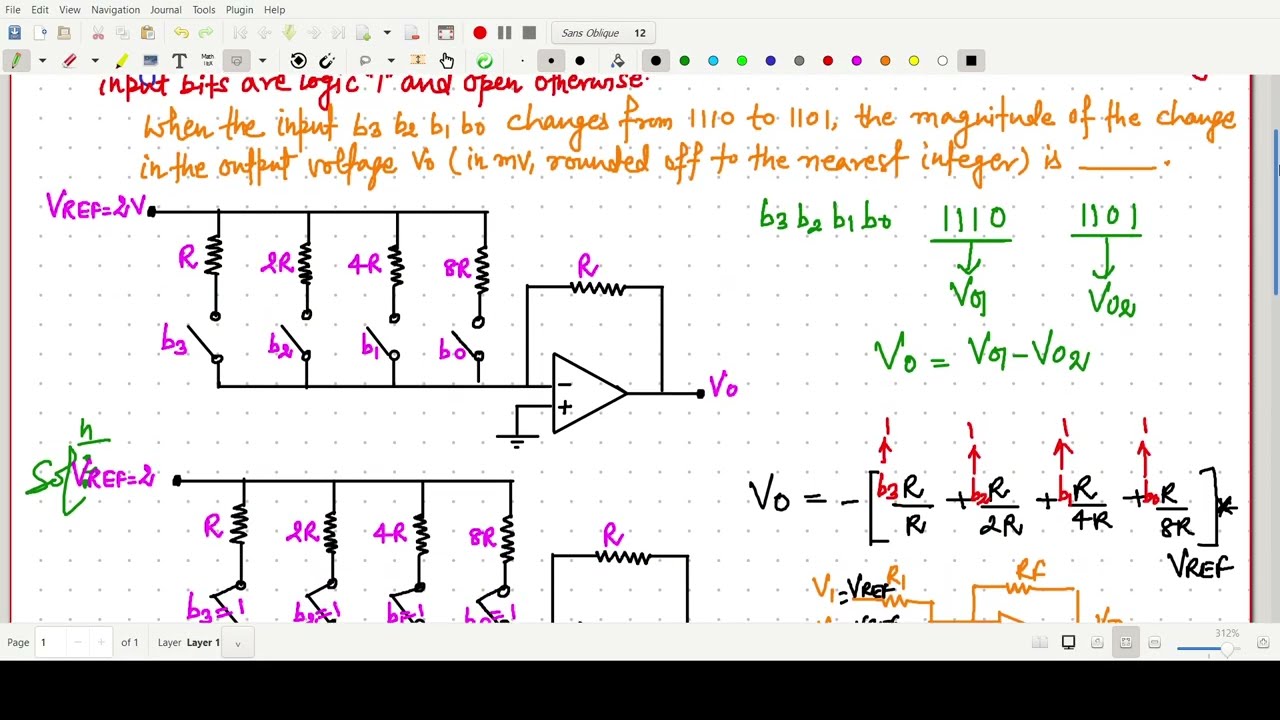 File Edit View Navigation Journal Tools Plugin Help
Sans Oblique 12
input bits are logic "1" and open otherwise.
When the input b3 b2 b1 b0 changes from 1110 to 1101, the magnitude of the change
in the output voltage Vo (in mV, rounded off to the nearest integer) is ______.
VREF=2V
R 2R 4R 8R R
b3 b2 b1 b0
- +
Vo
b3 b2 b1 b0 1110 1101
Vo1 Vo2
Vo = Vo1 - Vo2
Soln:
VREF=2
R 2R 4R 8R R
b3=1 b2=1 b1=1 b0=1
1 1 1 1
Vo = - [b3 R/R + b2 R/2R + b1 R/4R + b0 R/8R] * VREF
V1 = VREF R1 Rf
Page 1 of 1 Layer Layer 1 312%